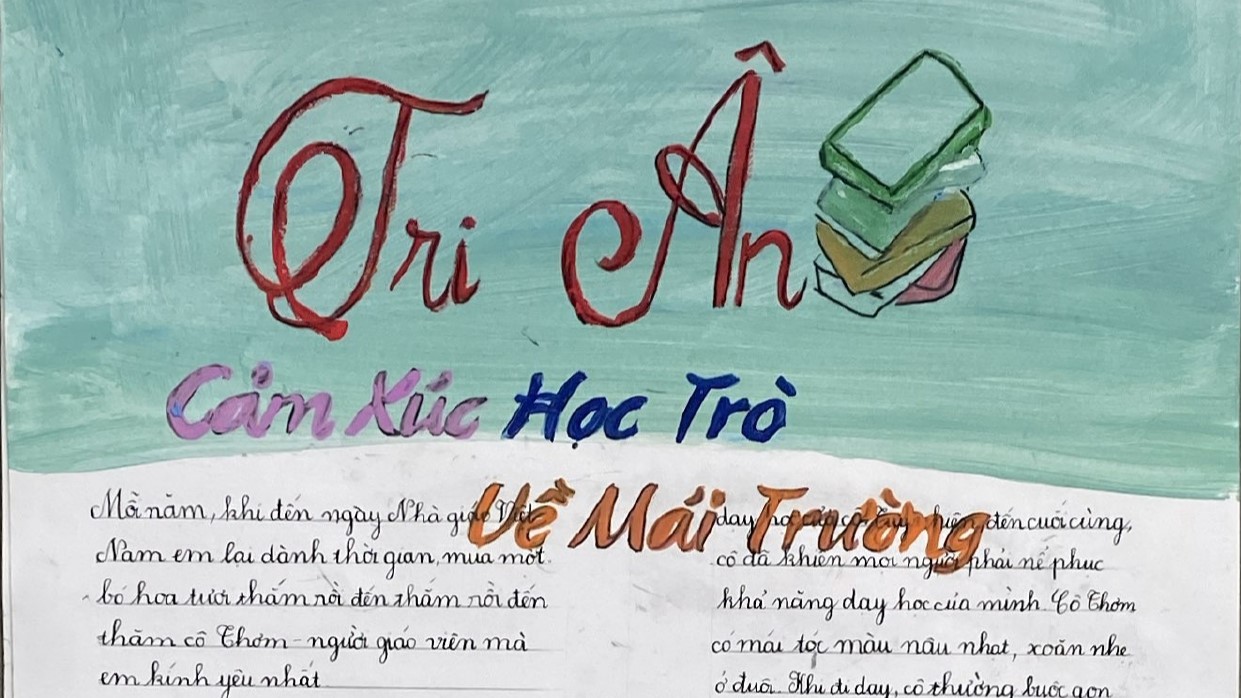 Tri Ân
Cảm Xúc Học Trò
Về Mái Trường
Mỗi năm, khi đến ngày Nhà giáo Việt
Nam em lại dành thời gian, mua một
bó hoa tươi thắm rồi đến thắm rồi đến
thăm cô Thơm - người giáo viên mà
em kính yêu nhất
dạy học của cô hiện đến cuối cùng,
cô đã khiến mọi người phải nể phục
khả năng dạy học của mình. Cô Thơm
có mái tóc màu nâu nhạt, xoăn nhẹ
ở đuôi. Khi đi dạy, cô thường buộc gọn